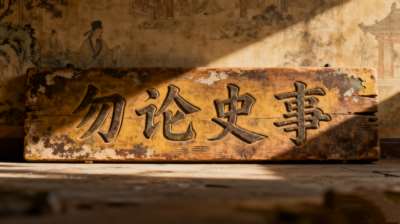 勿论史事